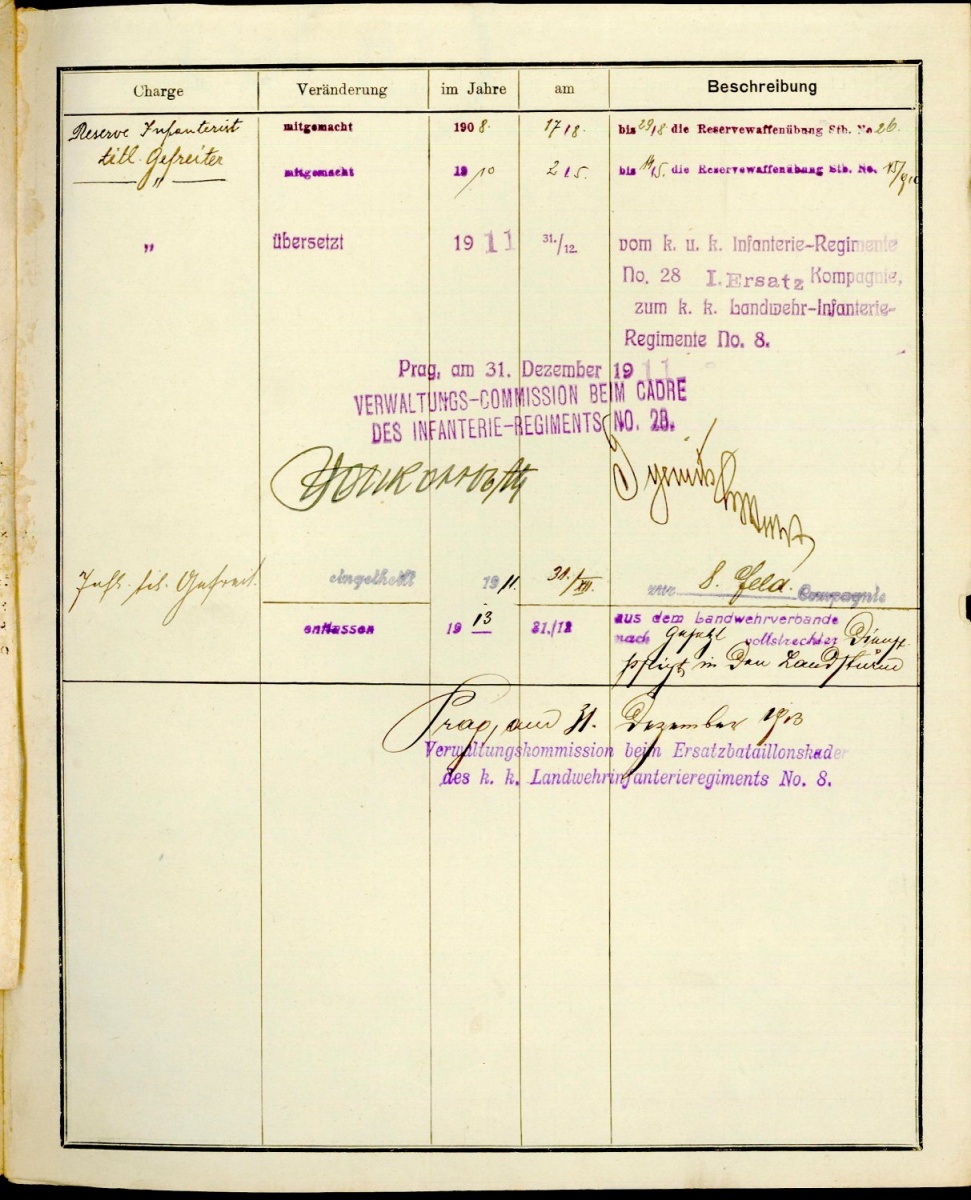 Charge Veränderung im Jahre am Beschreibung
Reserve Infanterist mitgemacht 1908. 17/8. bis 29/8. die Reservewaffenübung Stb. No 26.
titl. Gefreiter
" mitgemacht 19/10 2/5. bis 14/5. die Reservewaffenübung Stb. No. 15/910
" übersetzt 1911 31./12. vom k. u. k. Infanterie-Regimente
No. 28 I. Ersatz Kompagnie,
zum k. k. Landwehr-Infanterie-
Regimente No. 8.
Prag, am 31. Dezember 1911.
VERWALTUNGS-COMMISSION BEIM CADRE
DES INFANTERIE-REGIMENTS NO. 28.
Inft. tit. Gefreit. eingetheilt 1911. 31./XII. zur 8. Feld. Compagnie
entlassen 1913 31./12 aus dem Landwehrverbande
nach gesetzl vollstreckter Dienst
pflicht in den Landsturm
Prag, am 31. Dezember 1913
Verwaltungskommission beim Ersatzbataillonskader
des k. k. Landwehrinfanterieregiments No. 8.